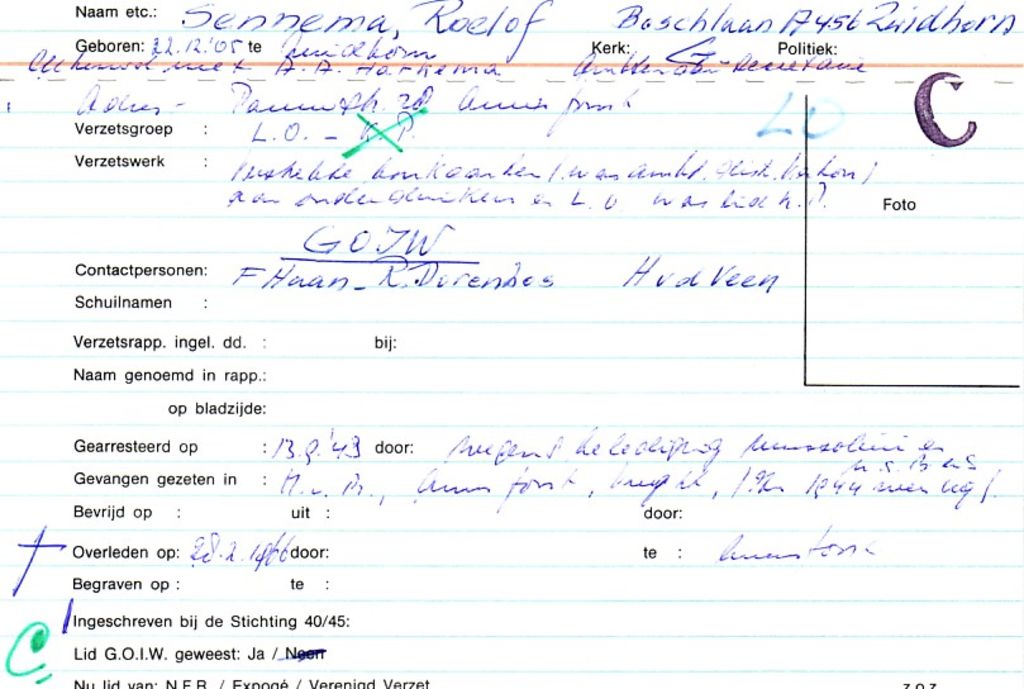 Naam etc.: Sennema, Roelof Boschlaan 17 456 Zuidhorn
Geboren: 22.12.'05 te Zuidhorn Kerk: G Politiek:
A.A. Harkema
Adres - 28 Amersfoort
LO
C
Verzetsgroep : L.O. - K.P.
Verzetswerk : verstrekte bonkaarten (was ambt. distr. kantoor)
aan onderduikers en L.O. was lid K.P.
Foto
GOIW
Contactpersonen: F Haan - R. Dorenbos H vd Veen
Schuilnamen :
Verzetsrapp. ingel. dd. : bij:
Naam genoemd in rapp.:
op bladzijde:
Gearresteerd op : 13.9.'43 door: wegens belediging Mussolini en
Gevangen gezeten in : H.v.B., Amersfoort, Vught, 1944 weer
Bevrijd op : uit : door:
Overleden op: 28.2.1966 door: te : Amersfoort
Begraven op : te :
Ingeschreven bij de Stichting 40/45:
Lid G.O.I.W. geweest: Ja / Neen
Nu lid van: N.F.R. / Expogé / Verenigd Verzet
z.o.z.